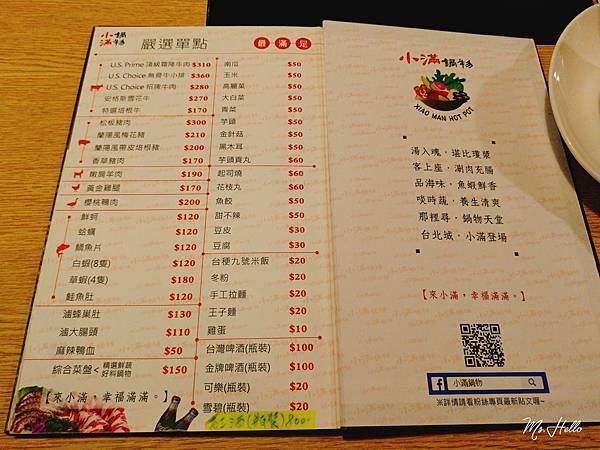 小滿鍋物
嚴選單點
最滿足
U.S. Prime 頂級霜降牛肉 $310
U.S. Choice 無骨牛小排 $360
U.S. Choice 招牌牛肉 $280
安格斯雪花牛 $270
特選培根牛 $170
松板豬肉 $300
蘭陽風梅花豬 $210
蘭陽風帶皮培根豬 $200
香草豬肉 $170
嫩肩羊肉 $190
黃金雞腿 $170
櫻桃鴨肉 $200
鮮蚵 $120
蛤蠣 $120
鯛魚片 $120
白蝦(8隻) $120
草蝦(4隻) $180
鮭魚肚 $120
滷蜂巢肚 $130
滷大腸頭 $110
麻辣鴨血 $50
綜合菜盤< 精選鮮蔬 好料鍋物 $150
【來小滿，幸福滿滿。】
南瓜 $50
玉米 $50
高麗菜 $50
大白菜 $50
青菜 $50
芋頭 $50
金針菇 $50
黑木耳 $50
芋頭貢丸 $60
起司燒 $60
花枝丸 $60
魚餃 $50
甜不辣 $50
豆皮 $30
豆腐 $30
台稉九號米飯 $20
冬粉 $20
手工拉麵 $20
王子麵 $20
雞蛋 $10
台灣啤酒(瓶裝) $100
金牌啤酒(瓶裝) $100
可樂(瓶裝) $20
雪碧(瓶裝) $20
小滿鍋物
XIAO MAN HOT POT
湯入魂，堪比瓊漿
客上座，涮肉充腸
品海味，魚蝦鮮香
啖時蔬，養生清爽
那裡尋，鍋物天堂
台北城，小滿登場
【來小滿，幸福滿滿。】
f 小滿鍋物
※詳情請看粉絲專頁最新貼文喔~
Ms. Hello